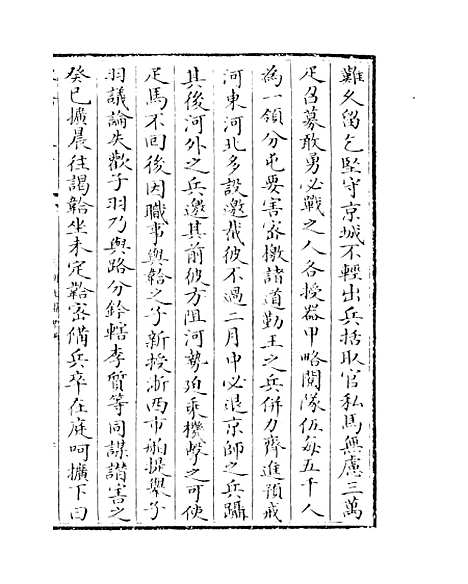 難久留乞堅守京城不輕出兵括取官私馬無慮三萬
疋召募敢勇必戰之人各授器甲略閱隊伍每五千人
為一領分屯要害密檄諸道勤王之兵併力齊進預戒
河東河北多設邀截彼不過二月中必退京師之兵躡
其後河外之兵邀其前彼方阻河勢迫乘機擊之可使
疋馬不回後因職事與韐之子新授浙西市舶提舉子
羽議論失歡子羽乃與路分鈐轄李質等同謀譖害之
癸巳擴晨往謁韐坐未定韐密備兵卒在庭呵擴下曰